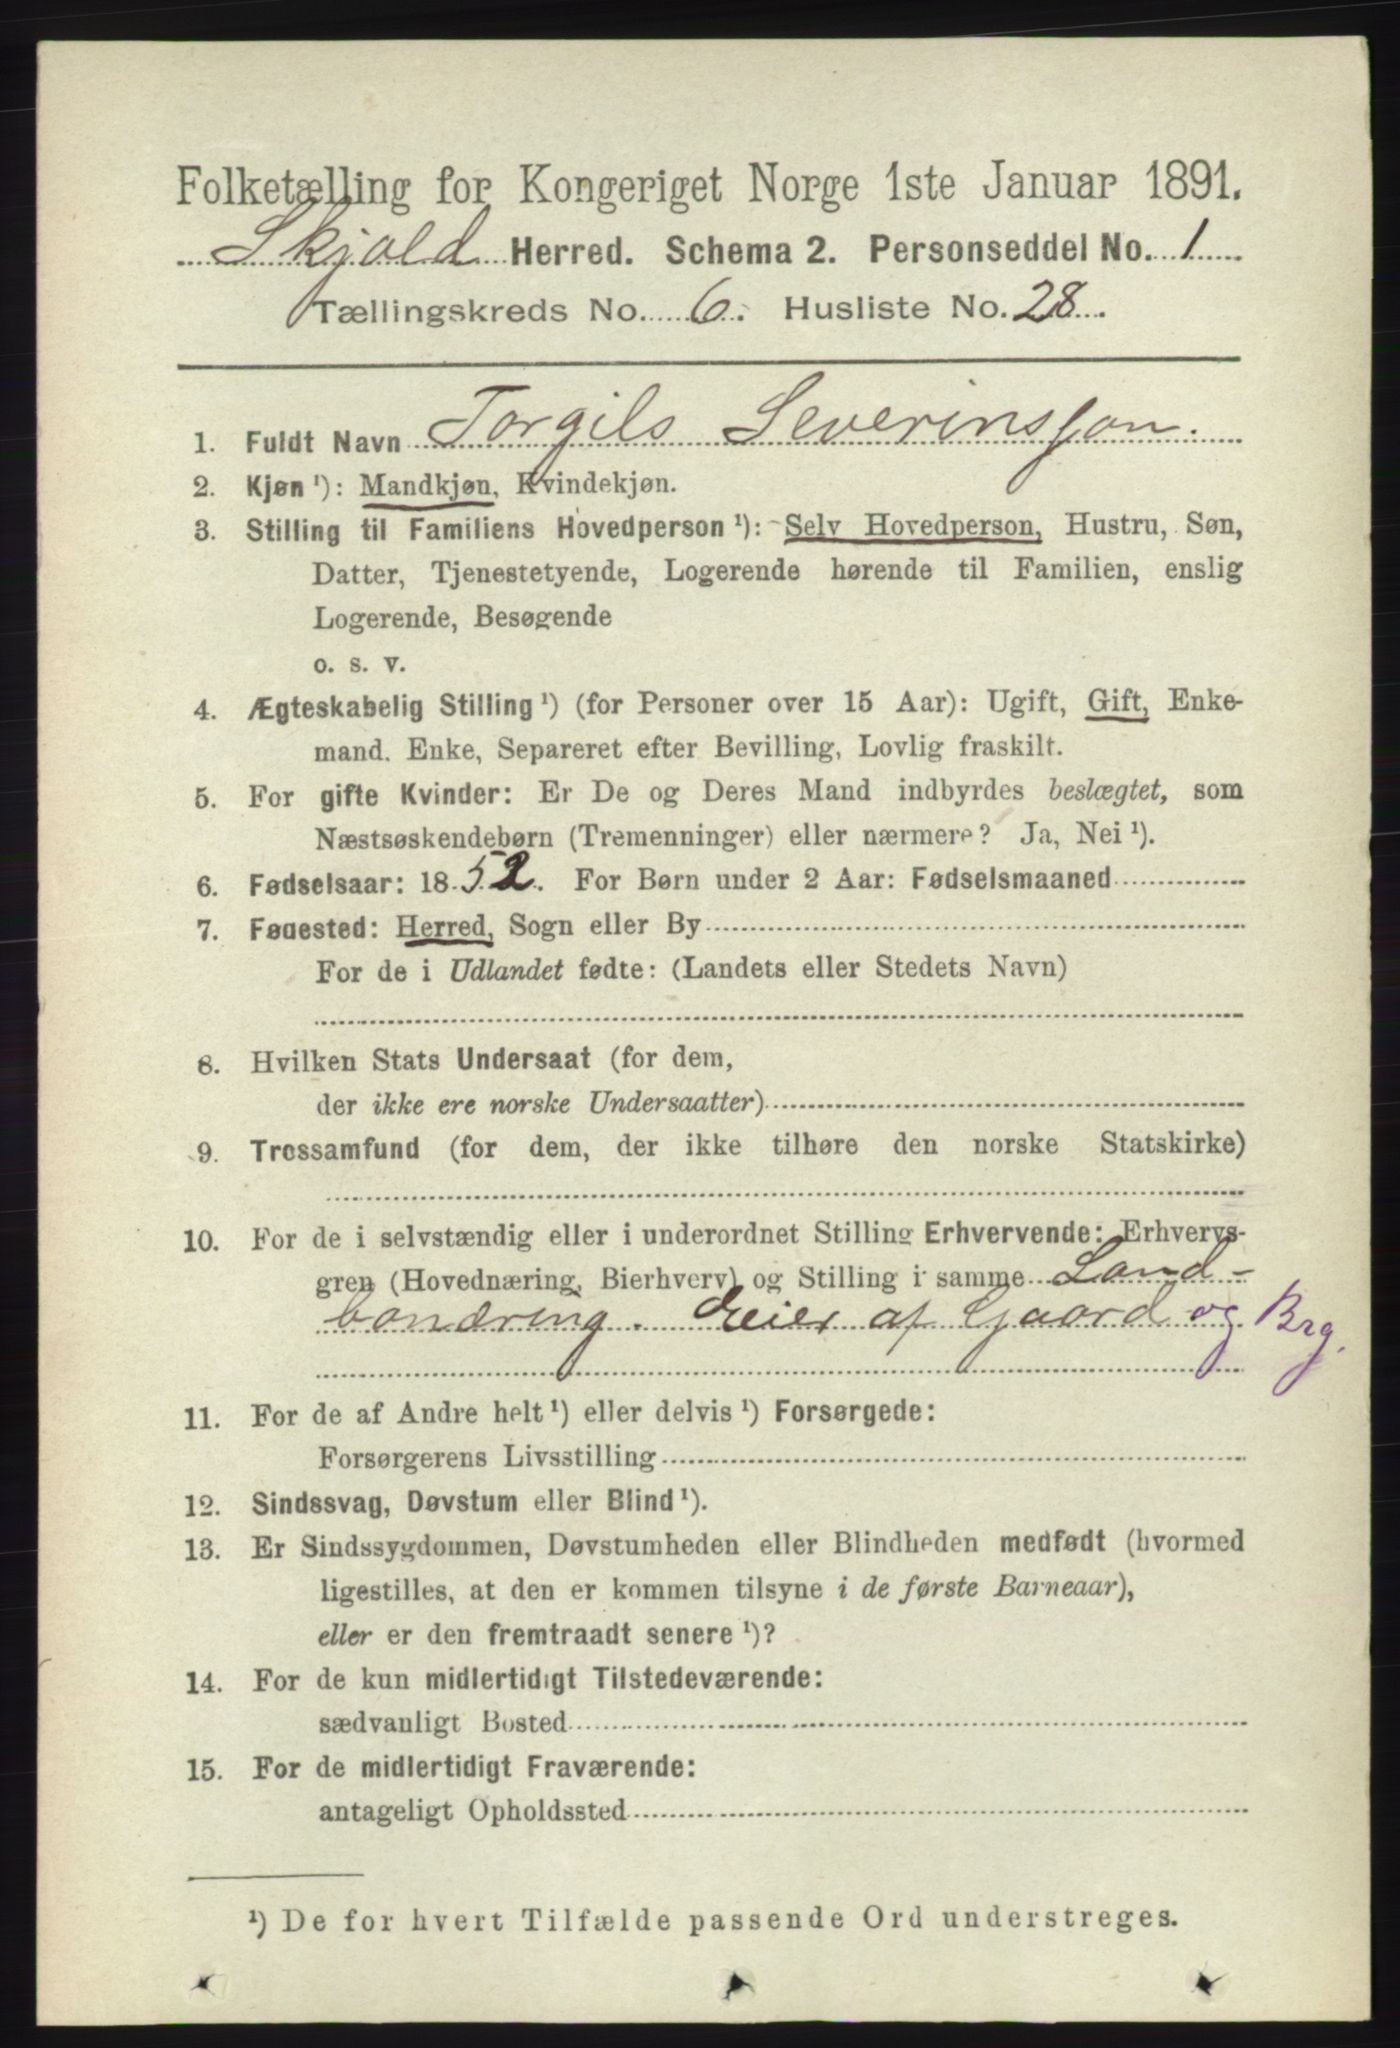 Folketælling for Kongeriget Norge 1ste Januar 1891.
Skjold Herred. Schema 2. Personseddel No. 1
Tællingskreds No. 6. Husliste No. 28.
1. Fuldt Navn Torgils Severinsson.
2. Kjøn ¹): Mandkjøn, Kvindekjøn.
3. Stilling til Familiens Hovedperson ¹): Selv Hovedperson, Hustru, Søn,
Datter, Tjenestetyende, Logerende hørende til Familien, enslig
Logerende, Besøgende
o. s. v.
4. Ægteskabelig Stilling ¹) (for Personer over 15 Aar): Ugift, Gift, Enke-
mand. Enke, Separeret efter Bevilling, Lovlig fraskilt.
5. For gifte Kvinder: Er De og Deres Mand indbyrdes beslægtet, som
Næstsøskendebørn (Tremenninger) eller nærmere? Ja, Nei ¹).
6. Fødselsaar: 1852. For Børn under 2 Aar: Fødselsmaaned
7. Fødested: Herred, Sogn eller By
For de i Udlandet fødte: (Landets eller Stedets Navn)
8. Hvilken Stats Undersaat (for dem,
der ikke ere norske Undersaatter)
9. Trossamfund (for dem, der ikke tilhøre den norske Statskirke)
10. For de i selvstændig eller i underordnet Stilling Erhvervende: Erhvervs-
gren (Hovednæring, Bierhverv) og Stilling i samme Land-
bonæring. Eeier af Gaard og Brg.
11. For de af Andre helt ¹) eller delvis ¹) Forsørgede:
Forsørgerens Livsstilling
12. Sindssvag, Døvstum eller Blind ¹).
13. Er Sindssygdommen, Døvstumheden eller Blindheden medfødt (hvormed
ligestilles, at den er kommen tilsyne i de første Barneaar),
eller er den fremtraadt senere ¹)?
14. For de kun midlertidigt Tilstedeværende:
sædvanligt Bosted
15. For de midlertidigt Fraværende:
antageligt Opholdssted
¹) De for hvert Tilfælde passende Ord understreges.